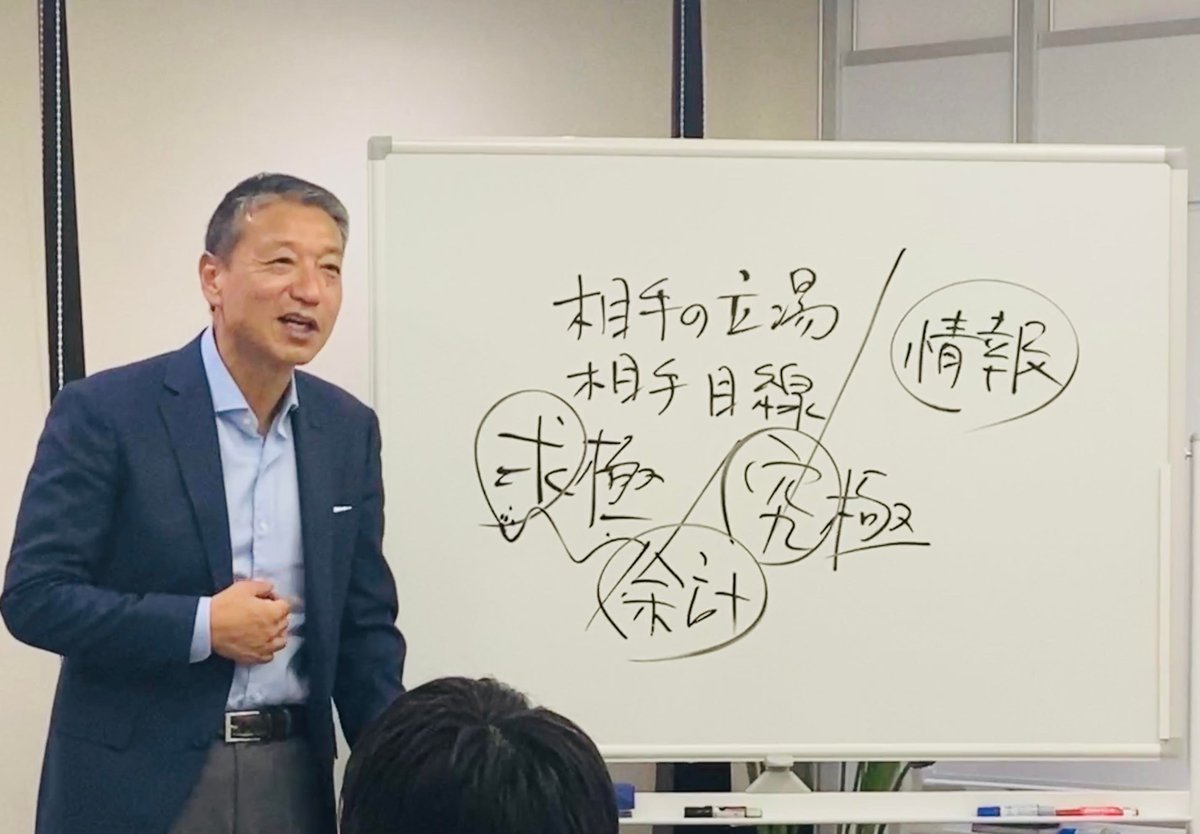 相手の立場
情報
相手目線
求極
究極
余計